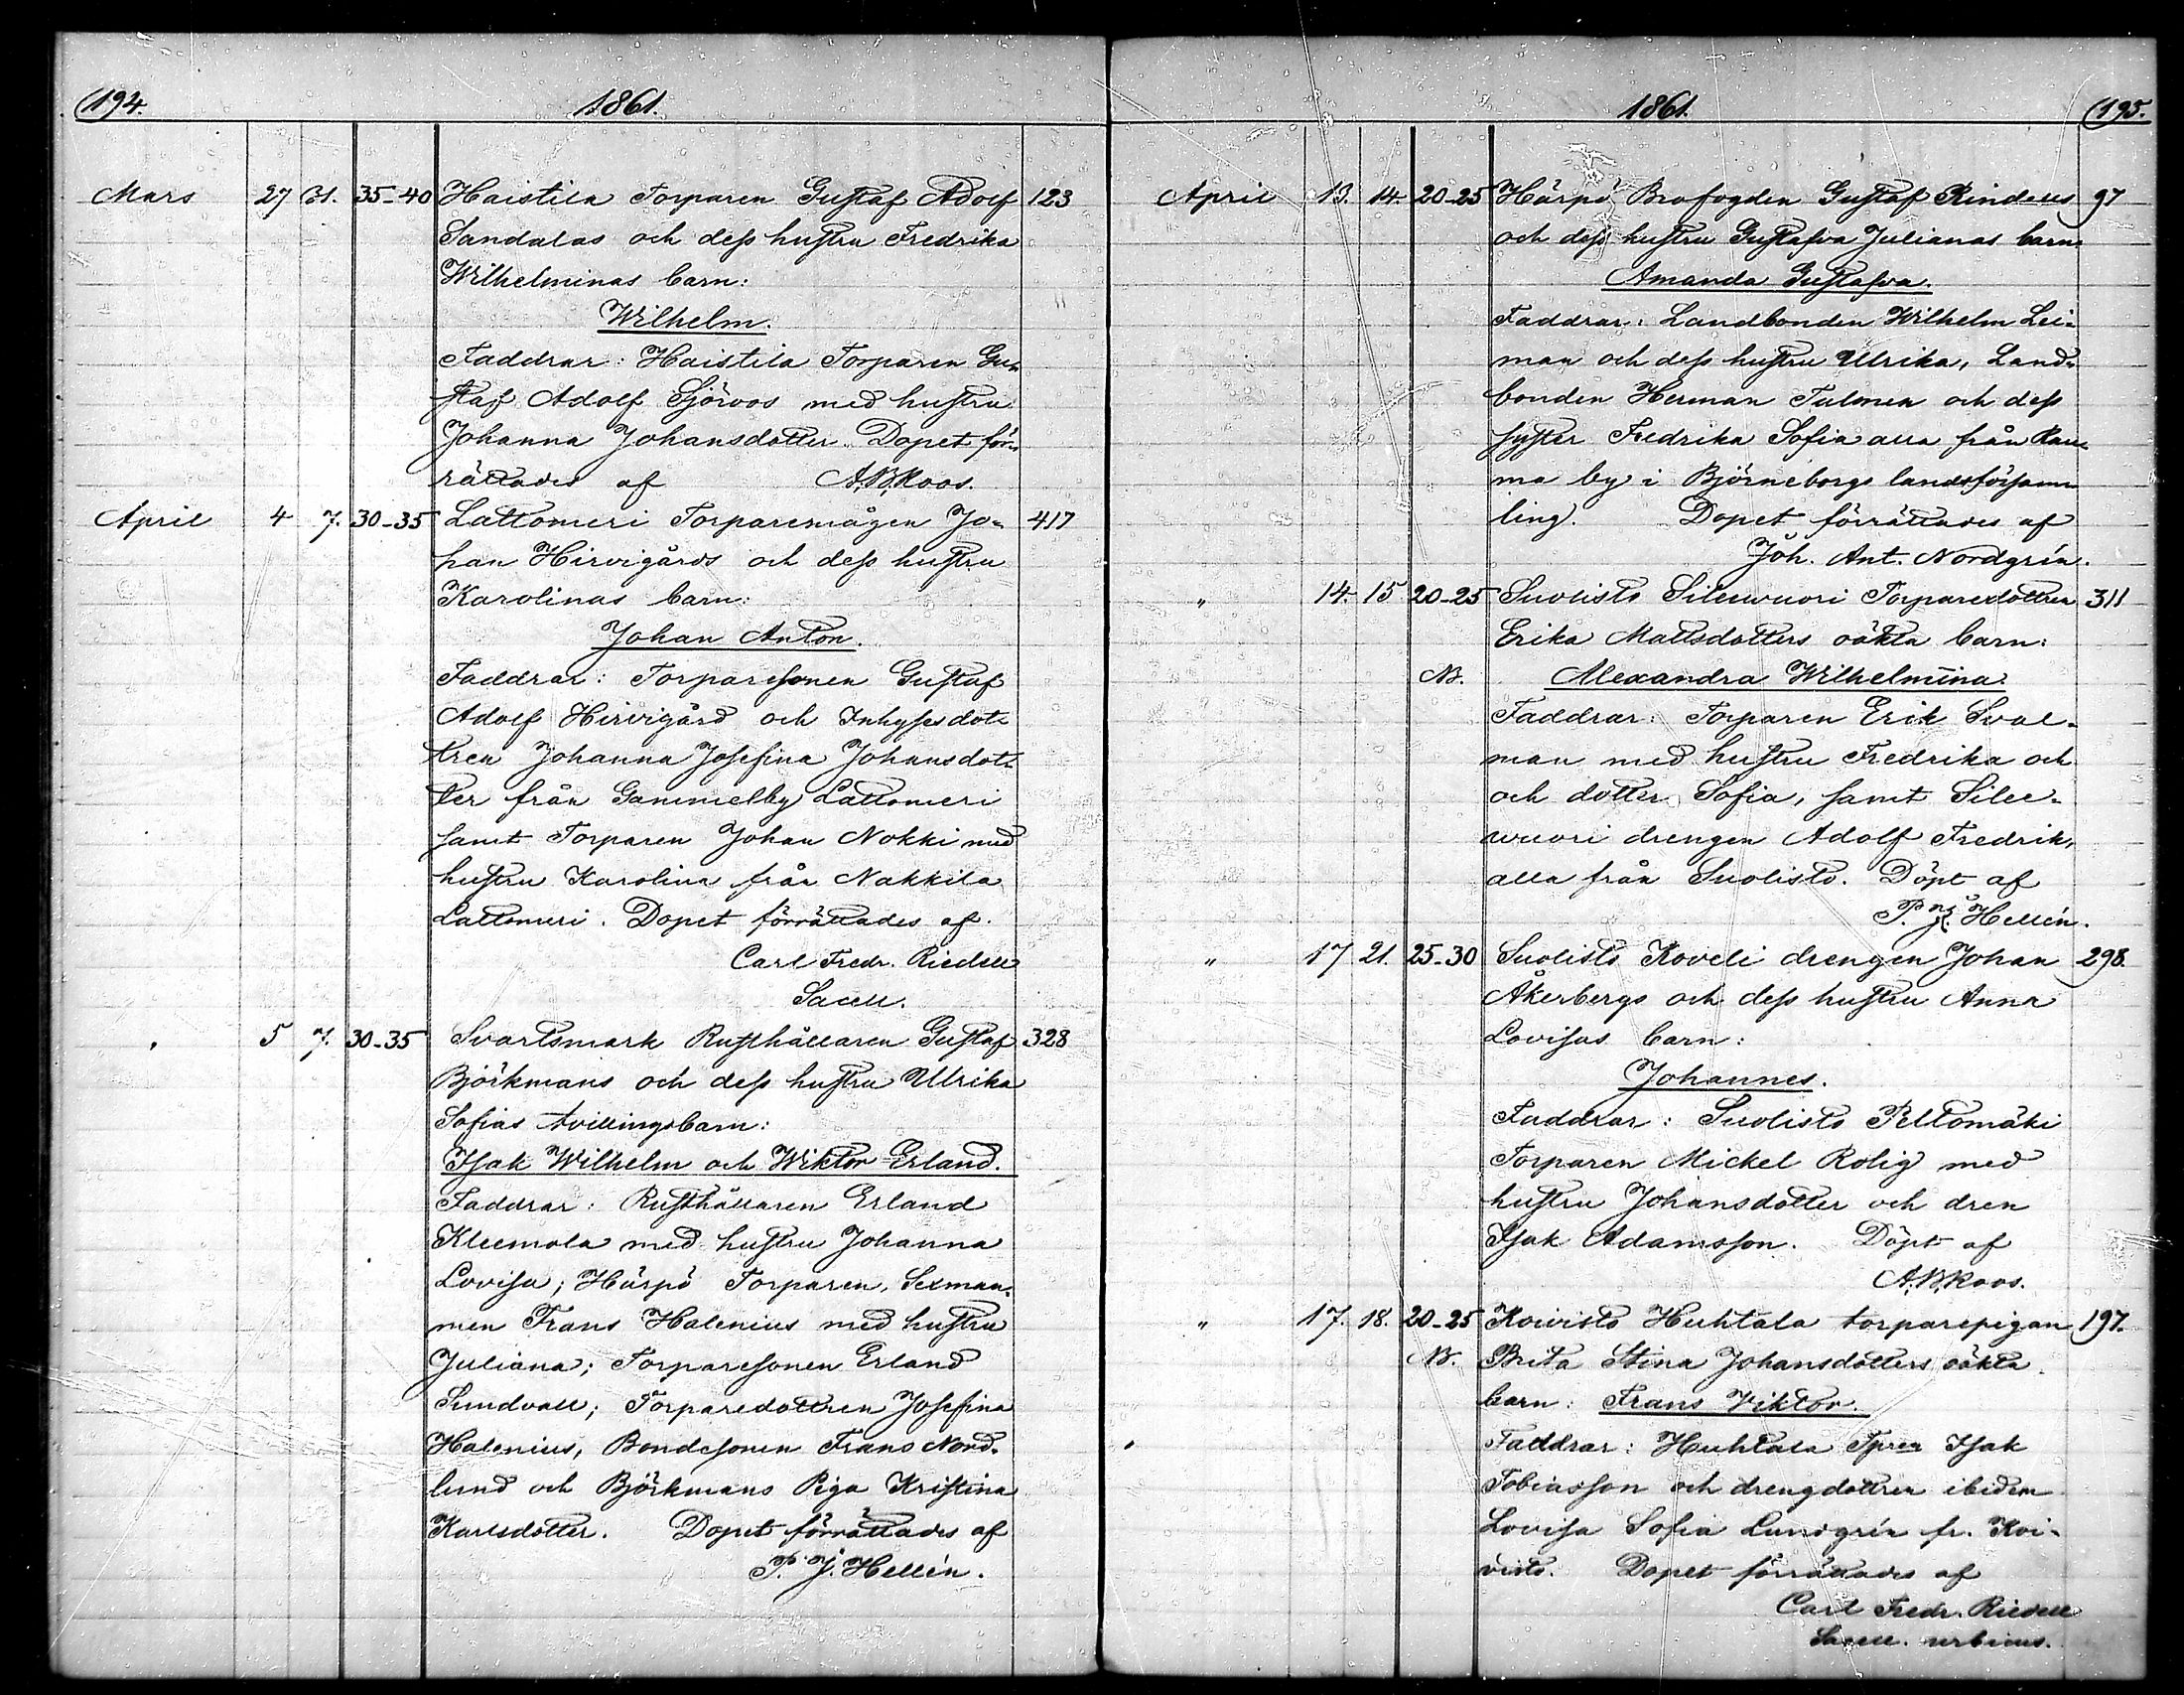 (194.
1861.
Mars 27 31. 35-40 Haistila Torparen Gustaf Adolf 123
Sandalas och dess hustru Fredrika
Wilhelminas barn:
Wilhelm.
Faddrar: Haistila Torparen Gu-
staf Adolf Sjöroos med hustru
Johanna Johansdotter. Dopet för-
rättades af A. W. Roos.
April 4 7. 30-35 Lattomeri Torparemågen Jo- 417
han Hirvigårds och dess hustru
Karolinas barn:
Johan Anton.
Faddrar: Torparesonen Gustaf
Adolf Hirvigård och Inhysesdot-
tren Johanna Josefina Johansdot-
ter från Gammelby Lattomeri
samt Torparen Johan Nokki med
hustru Karolina från Nakkila
Lattomeri. Dopet förrättades af
Carl Fredr. Riedell
Sacell.
5 7. 30-35 Svartsmark Rusthållaren Gustaf 328
Björkmans och dess hustru Ulrika
Sofias tvillingsbarn:
Isak Wilhelm och Wiktor Erland.
Faddrar: Rusthållaren Erland
Kleemola med hustru Johanna
Lovisa; Härpö Torparen, Sexman-
nen Frans Halenius med hustru
Juliana; Torparesonen Erland
Sundvall; Torparedottren Josefina
Halenius, Bondesonen Frans Nord-
lund och Björkmans Piga Kristina
Karlsdotter. Dopet förrättades af
P. J. Hellén.
1861.
(195.
April 13. 14. 20-25 Härpö Brofogden Gustaf Rindells 97
och dess hustru Gustafva Julianas barn
Amanda Gustafva.
Faddrar: Landbonden Wilhelm Lei-
man och dess hustru Ulrika, Land-
bonden Herman Tulonen och dess
syster Fredrika Sofia alla från
ma by i Björneborgs landsförsam-
ling. Dopet förrättades af
Joh. Ant. Nordgrén.
" 14. 15 20-25 Suolisto Sileevuori Torparedottren 311
Erika Mattsdotters oäkta barn:
NB. Alexandra Wilhelmina.
Faddrar: Torparen Erik Sval-
man med hustru Fredrika och
och dotter Sofia, samt Silee-
wuori drengen Adolf Fredrik,
alla från Suolisto. Döpt af
P. J. Hellén.
" 17 21. 25-30 Suolisto Koveli drengen Johan 298.
Åkerbergs och dess hustru Anna
Lovisas barn:
Johannes.
Faddrar: Suolisto Peltomäki
Torparen Mickel Rolig med
hustru Johansdotter och dren
Isak Adamsson. Döpt af
A. W. Roos.
" 17. 18. 20-25 Koivisto Huhtala torparepigan 197.
NB. Brita Stina Johansdotters oäkta
barn: Frans Viktor.
Faddrar: Huhtala Tpren Isak
Tobiasson och drengdottren ibidem
Lovisa Sofia Lundgrén fr. Koi-
visto. Dopet förrättades af
Carl Fredr. Riedell
Sacell. urbicus.